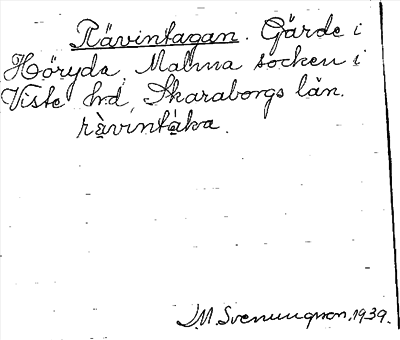 Rävintagan. Gärde i
Höryda, Malma socken i
Viste hd, Skaraborgs län.
rävintàka.
J.M. Svenungsson, 1939.